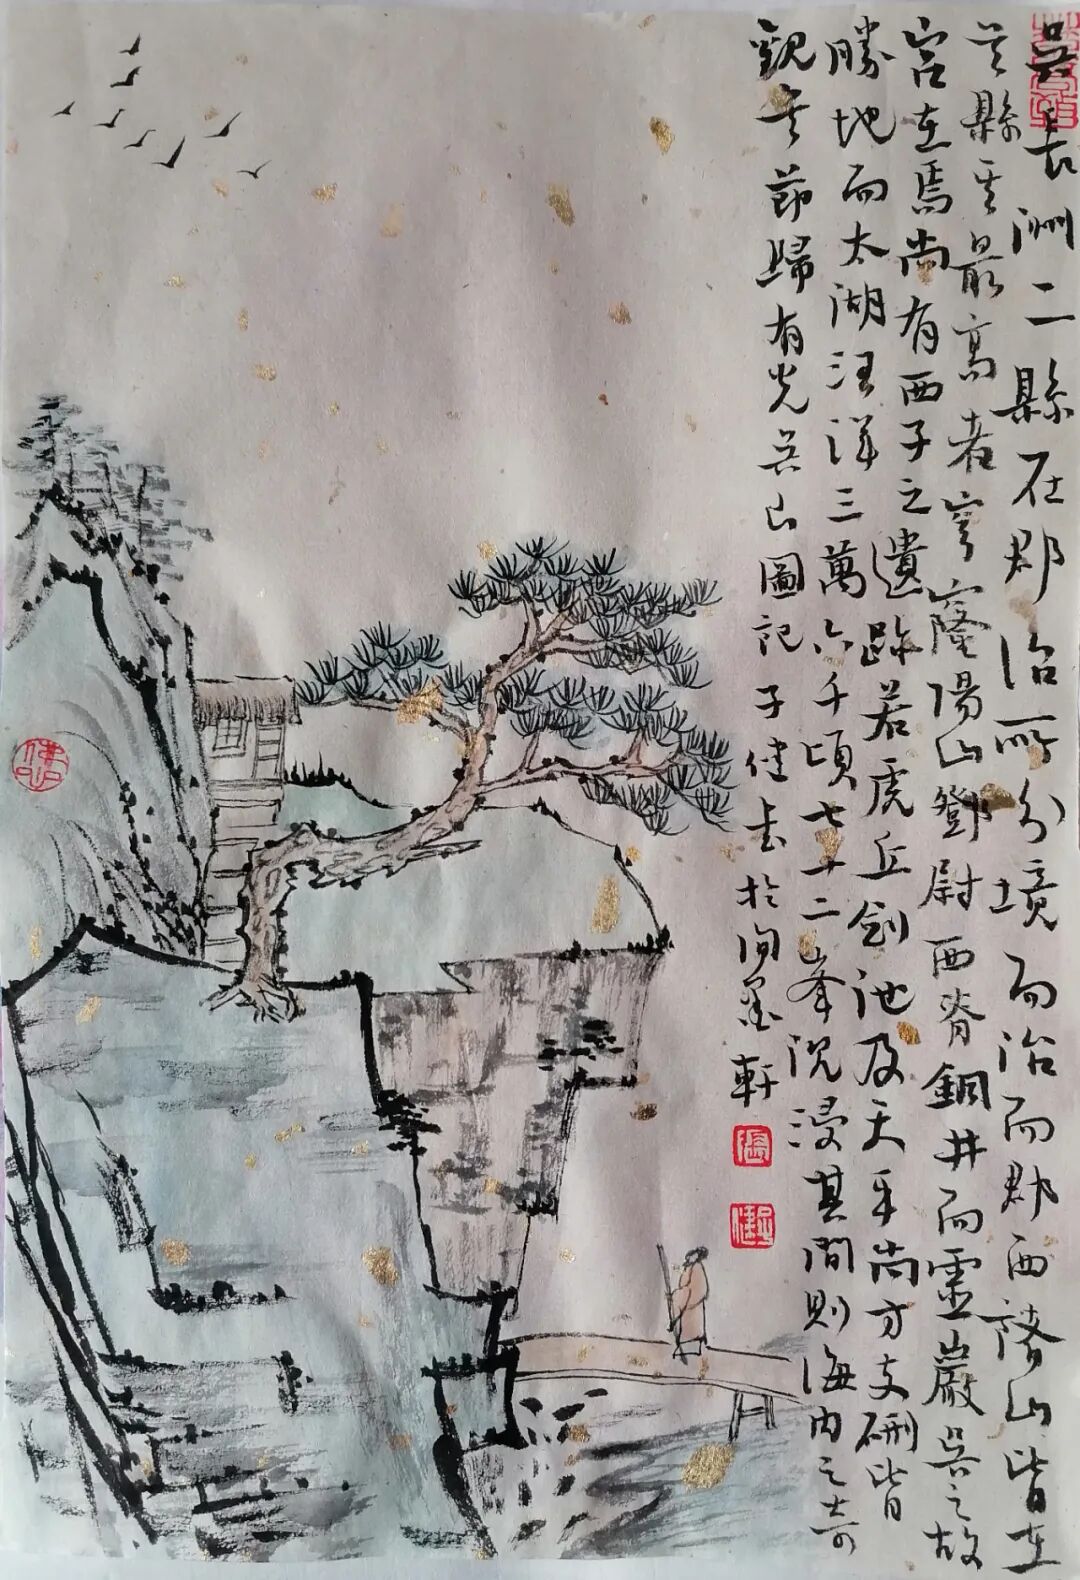 吳長洲二縣在郡治所分境而治而郡西諸山皆在
吳縣其最高者穹窿陽山鄧尉西脊銅井而靈巖吳之故
宮在焉尚有西子之遺跡若虎丘劍池及天平尚方支硎皆
勝地而太湖汪洋三萬六千頃七十二峰沉浸其間則海內之奇
觀矣節歸有光吳山圖記子健書於閒墨軒
張
健
佛心